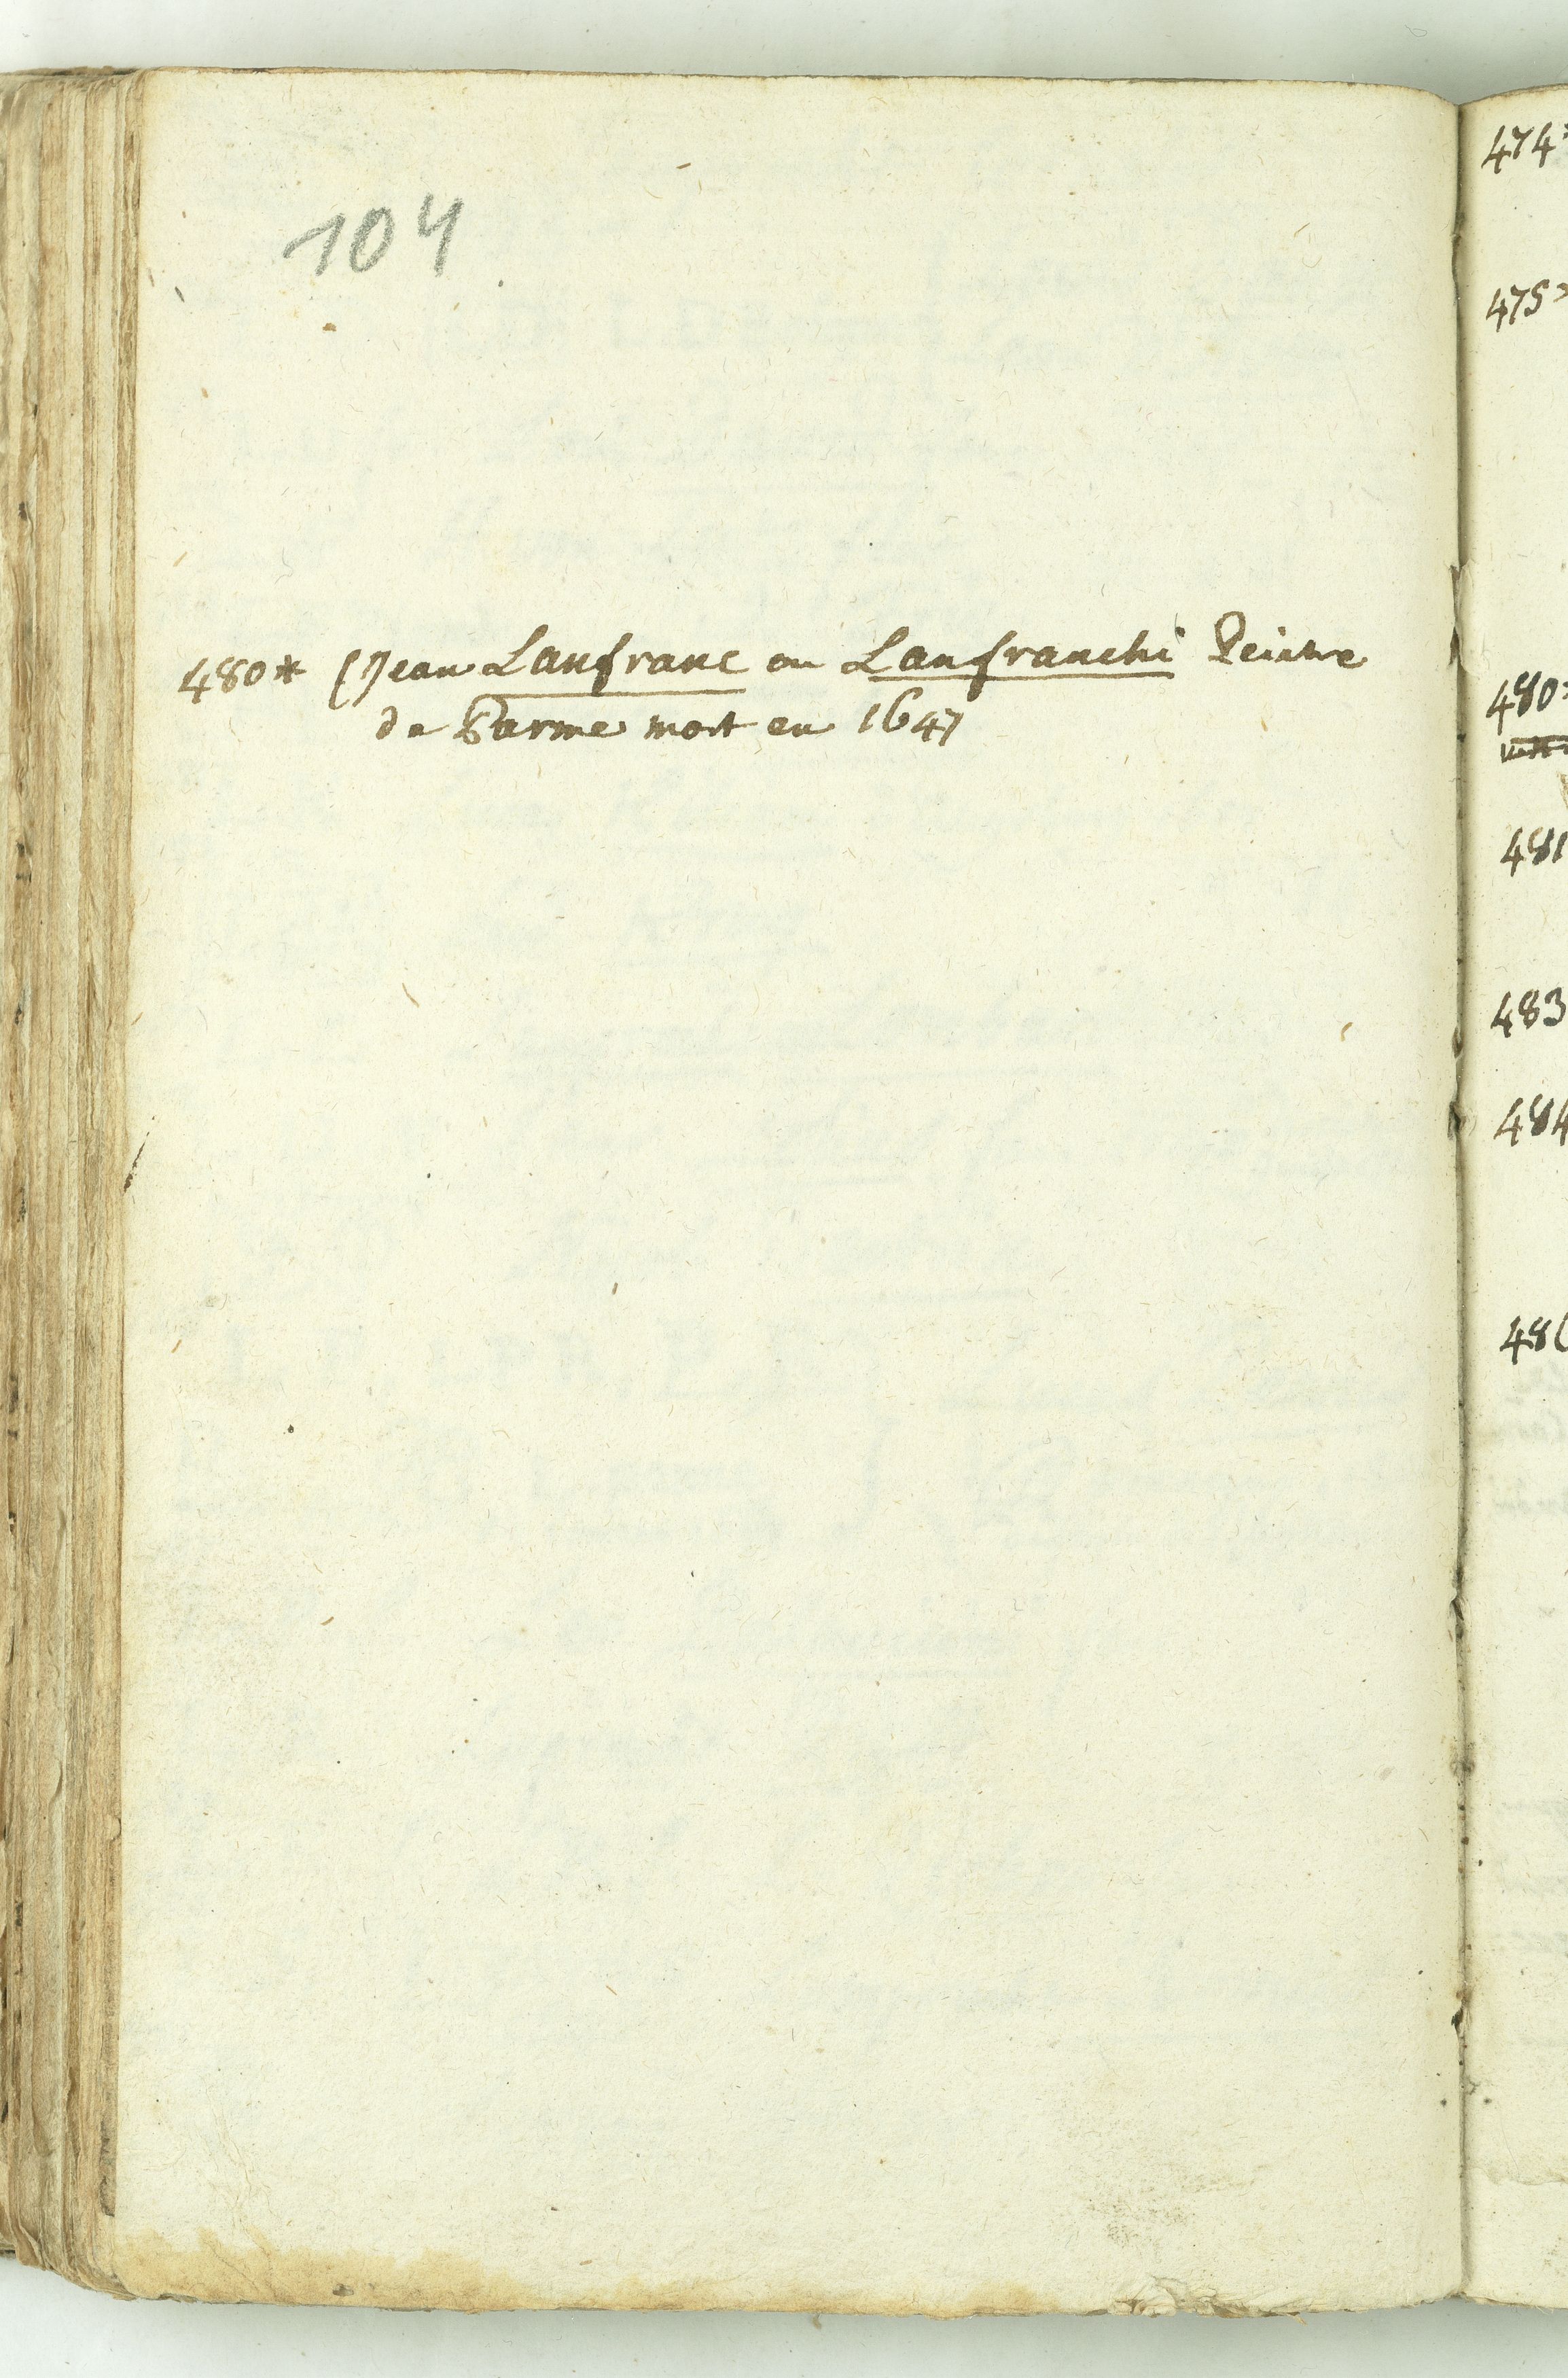 104
480* (Jean Lanfranc ou Lanfranchi Peintre
de Parme mort en 1647
474
475
480
481
483
484